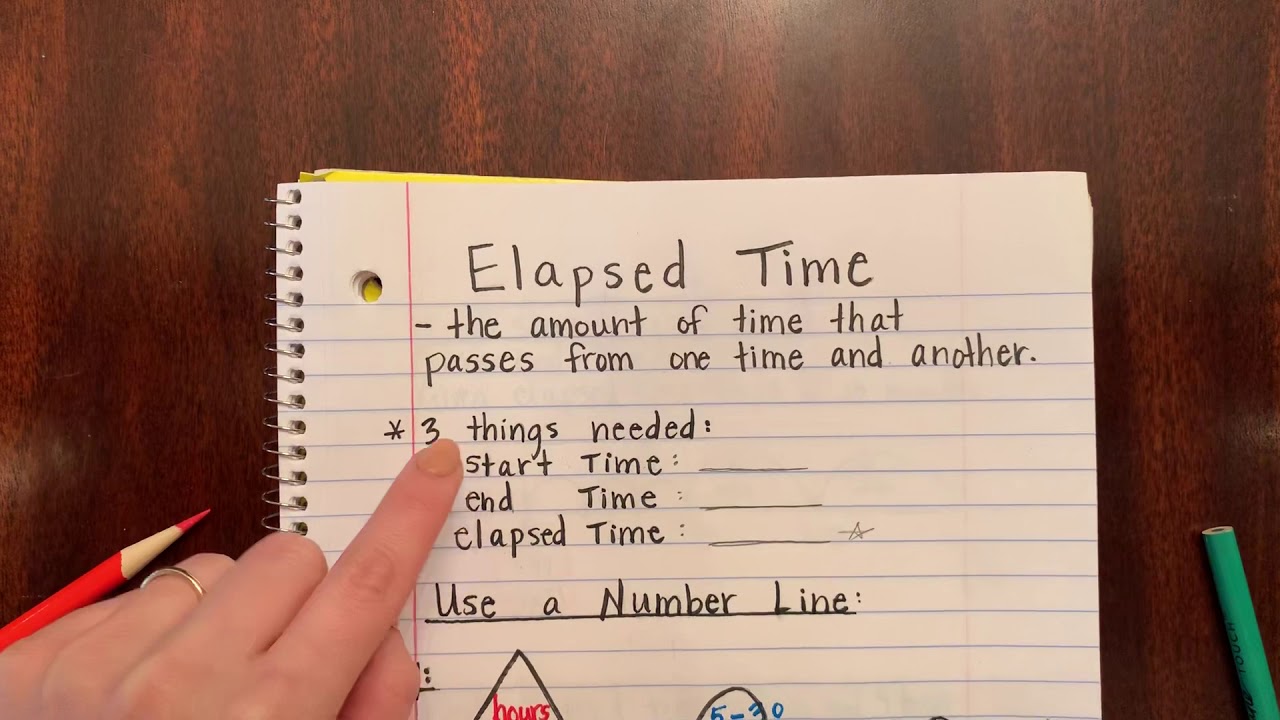 Elapsed Time
- the amount of time that
passes from one time and another.
* 3 things needed:
start Time:
end Time:
elapsed Time:
Use a Number Line:
hours
5-30